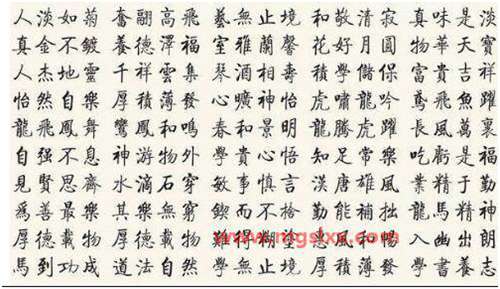 人淡如菊奮翮高飛藝無止境和敬清寂真味是淡
真金不鍍養德澤福室雅蘭馨花好月圓物華天寶
人杰地靈千祥雲集琴酒相壽積學儲保富貴吉祥
怡然自樂厚積薄發心曠神怡虎嘯龍吟鳶飛魚躍
龍飛鳳舞鸞鳳和鳴春和景明龍騰虎躍長風萬裏
自强不息神游物外學貴心悟知足常樂吃虧是福
見賢思齊水滴石穿敏事慎言漢唐雄風業精于勤
爲善最樂其樂無窮鍥而不捨勤能補拙龍馬精神
厚德載物厚德載物難得糊塗風和暢入幽出朗
馬到功成道法自然學無止境厚積薄發學書養志